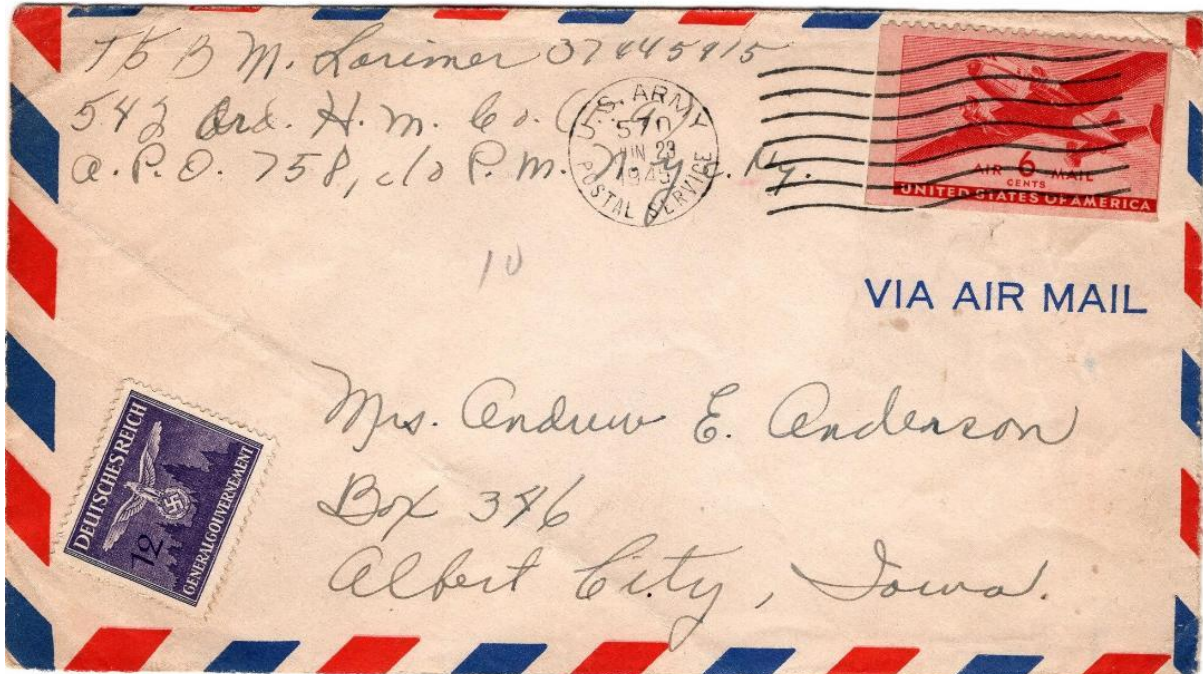 T/5 B M. Lorimer 37445915
542 Ord. H.M. Co.
A.P.O. 758, c/o P.M. N.Y. Ny.
U.S. ARMY
570
JUN 23
1945
POSTAL SERVICE
AIR 6 MAIL
CENTS
UNITED STATES OF AMERICA
10
VIA AIR MAIL
Mrs. Andrew E. Anderson
Box 346
Albert City, Iowa.
DEUTSCHES REICH
12
GENERALGOUVERNEMENT